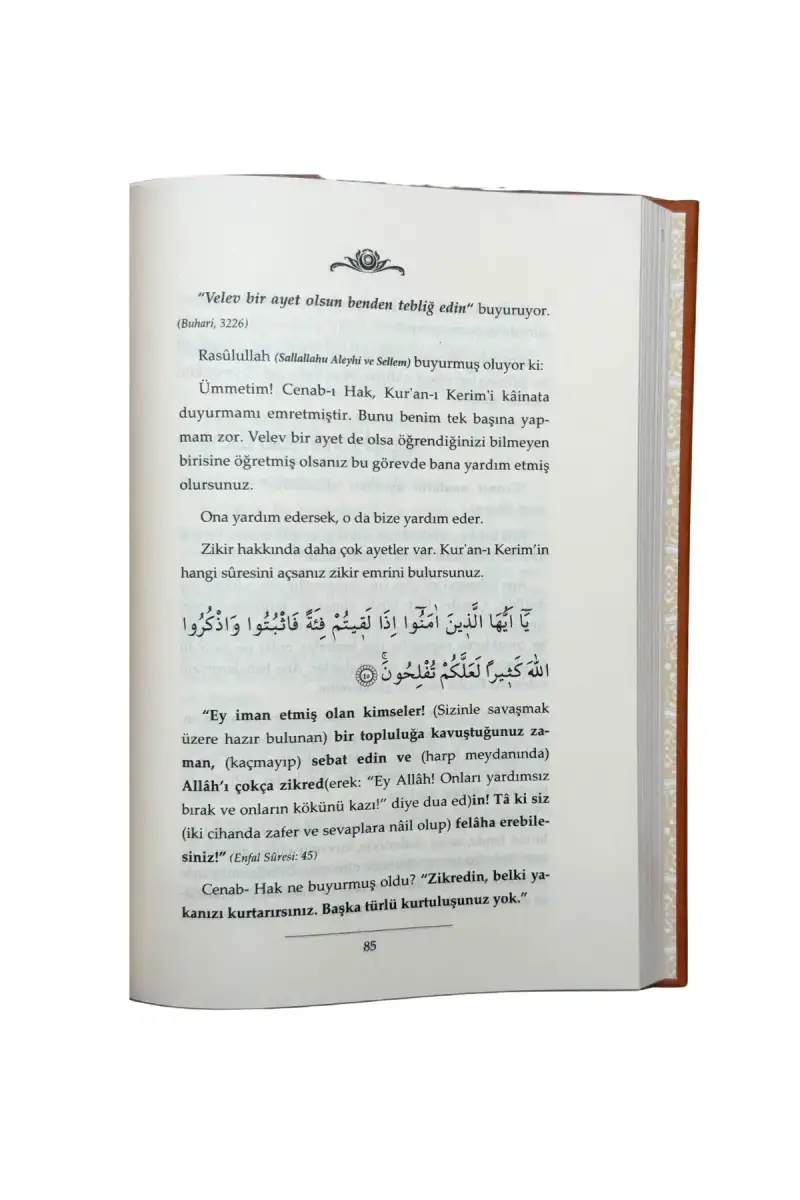 “Velev bir ayet olsun benden tebliğ edin“ buyuruyor.
(Buhari, 3226)
Rasûlullah (Sallallahu Aleyhi ve Sellem) buyurmuş oluyor ki:
Ümmetim! Cenab-ı Hak, Kur'an-ı Kerim'i kâinata
duyurmamı emretmiştir. Bunu benim tek başına yap-
mam zor. Velev bir ayet de olsa öğrendiğinizi bilmeyen
birisine öğretmiş olsanız bu görevde bana yardım etmiş
olursunuz.
Ona yardım edersek, o da bize yardım eder.
Zikir hakkında daha çok ayetler var. Kur'an-ı Kerim’in
hangi sûresini açsanız zikir emrini bulursunuz.
يَٓا اَيُّهَا الَّذٖينَ اٰمَنُٓوا اِذَا لَقٖيتُمْ فِئَةً فَاثْبُتُوا وَاذْكُرُوا
اللّٰهَ كَثٖيراً لَعَلَّكُمْ تُفْلِحُونَۚ ﴿٤٥﴾
“Ey iman etmiş olan kimseler! (Sizinle savaşmak
üzere hazır bulunan) bir topluluğa kavuştuğunuz za-
man, (kaçmayıp) sebat edin ve (harp meydanında)
Allâh’ı çokça zikred(erek: “Ey Allâh! Onları yardımsız
bırak ve onların kökünü kazı!” diye dua ed)in! Tâ ki siz
(iki cihanda zafer ve sevaplara nâil olup) felâha erebile-
siniz!” (Enfal Sûresi: 45)
Cenab- Hak ne buyurmuş oldu? “Zikredin, belki ya-
kanızı kurtarırsınız. Başka türlü kurtuluşunuz yok.”
85